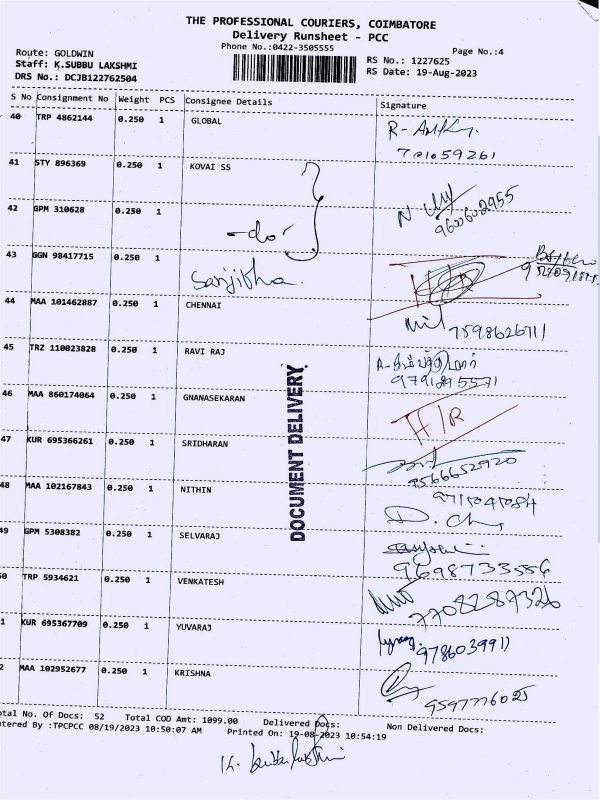 THE PROFESSIONAL COURIERS, COIMBATORE
Delivery Runsheet - PCC
Phone No.:0422-3505555
Page No.:4
Route: GOLDWIN
Staff: K.SUBBU LAKSHMI
DRS No.: DCJB122762504
RS No.: 1227625
RS Date: 19-Aug-2023
S No Consignment No Weight PCS Consignee Details Signature
40 TRP 4862144 0.250 1 GLOBAL
41 STY 896369 0.250 1 KOVAI SS
42 GPM 310628 0.250 1
-do-
9600602955
43 GGN 98417715 0.250 1
Sanjibha
44 MAA 101462887 0.250 1 CHENNAI
7598626711
45 TRZ 110023828 0.250 1 RAVI RAJ
9791295571
46 MAA 860174064 0.250 1 GNANASEKARAN
H/R
47 KUR 695366261 0.250 1 SRIDHARAN
9566652920
48 MAA 102167843 0.250 1 NITHIN
49 GPM 5308382 0.250 1 SELVARAJ
9698733556
50 TRP 5934621 0.250 1 VENKATESH
7708289326
1 KUR 695367709 0.250 1 YUVARAJ
9786039911
2 MAA 102952677 0.250 1 KRISHNA
9597776025
DOCUMENT DELIVERY
otal No. Of Docs: 52 Total COD Amt: 1099.00 Delivered Docs: Non Delivered Docs:
ntered By :TPCPCC 08/19/2023 10:50:07 AM Printed On: 19-08-2023 10:54:19